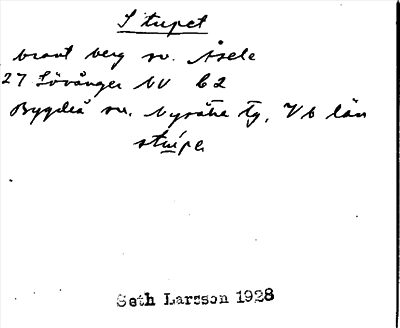 Stupet
brant berg sv. Åsele
27 Lövånger NV C2
Bygdeå sn. Nysätra tg, Vb län
stúpe
Seth Larsson 1928